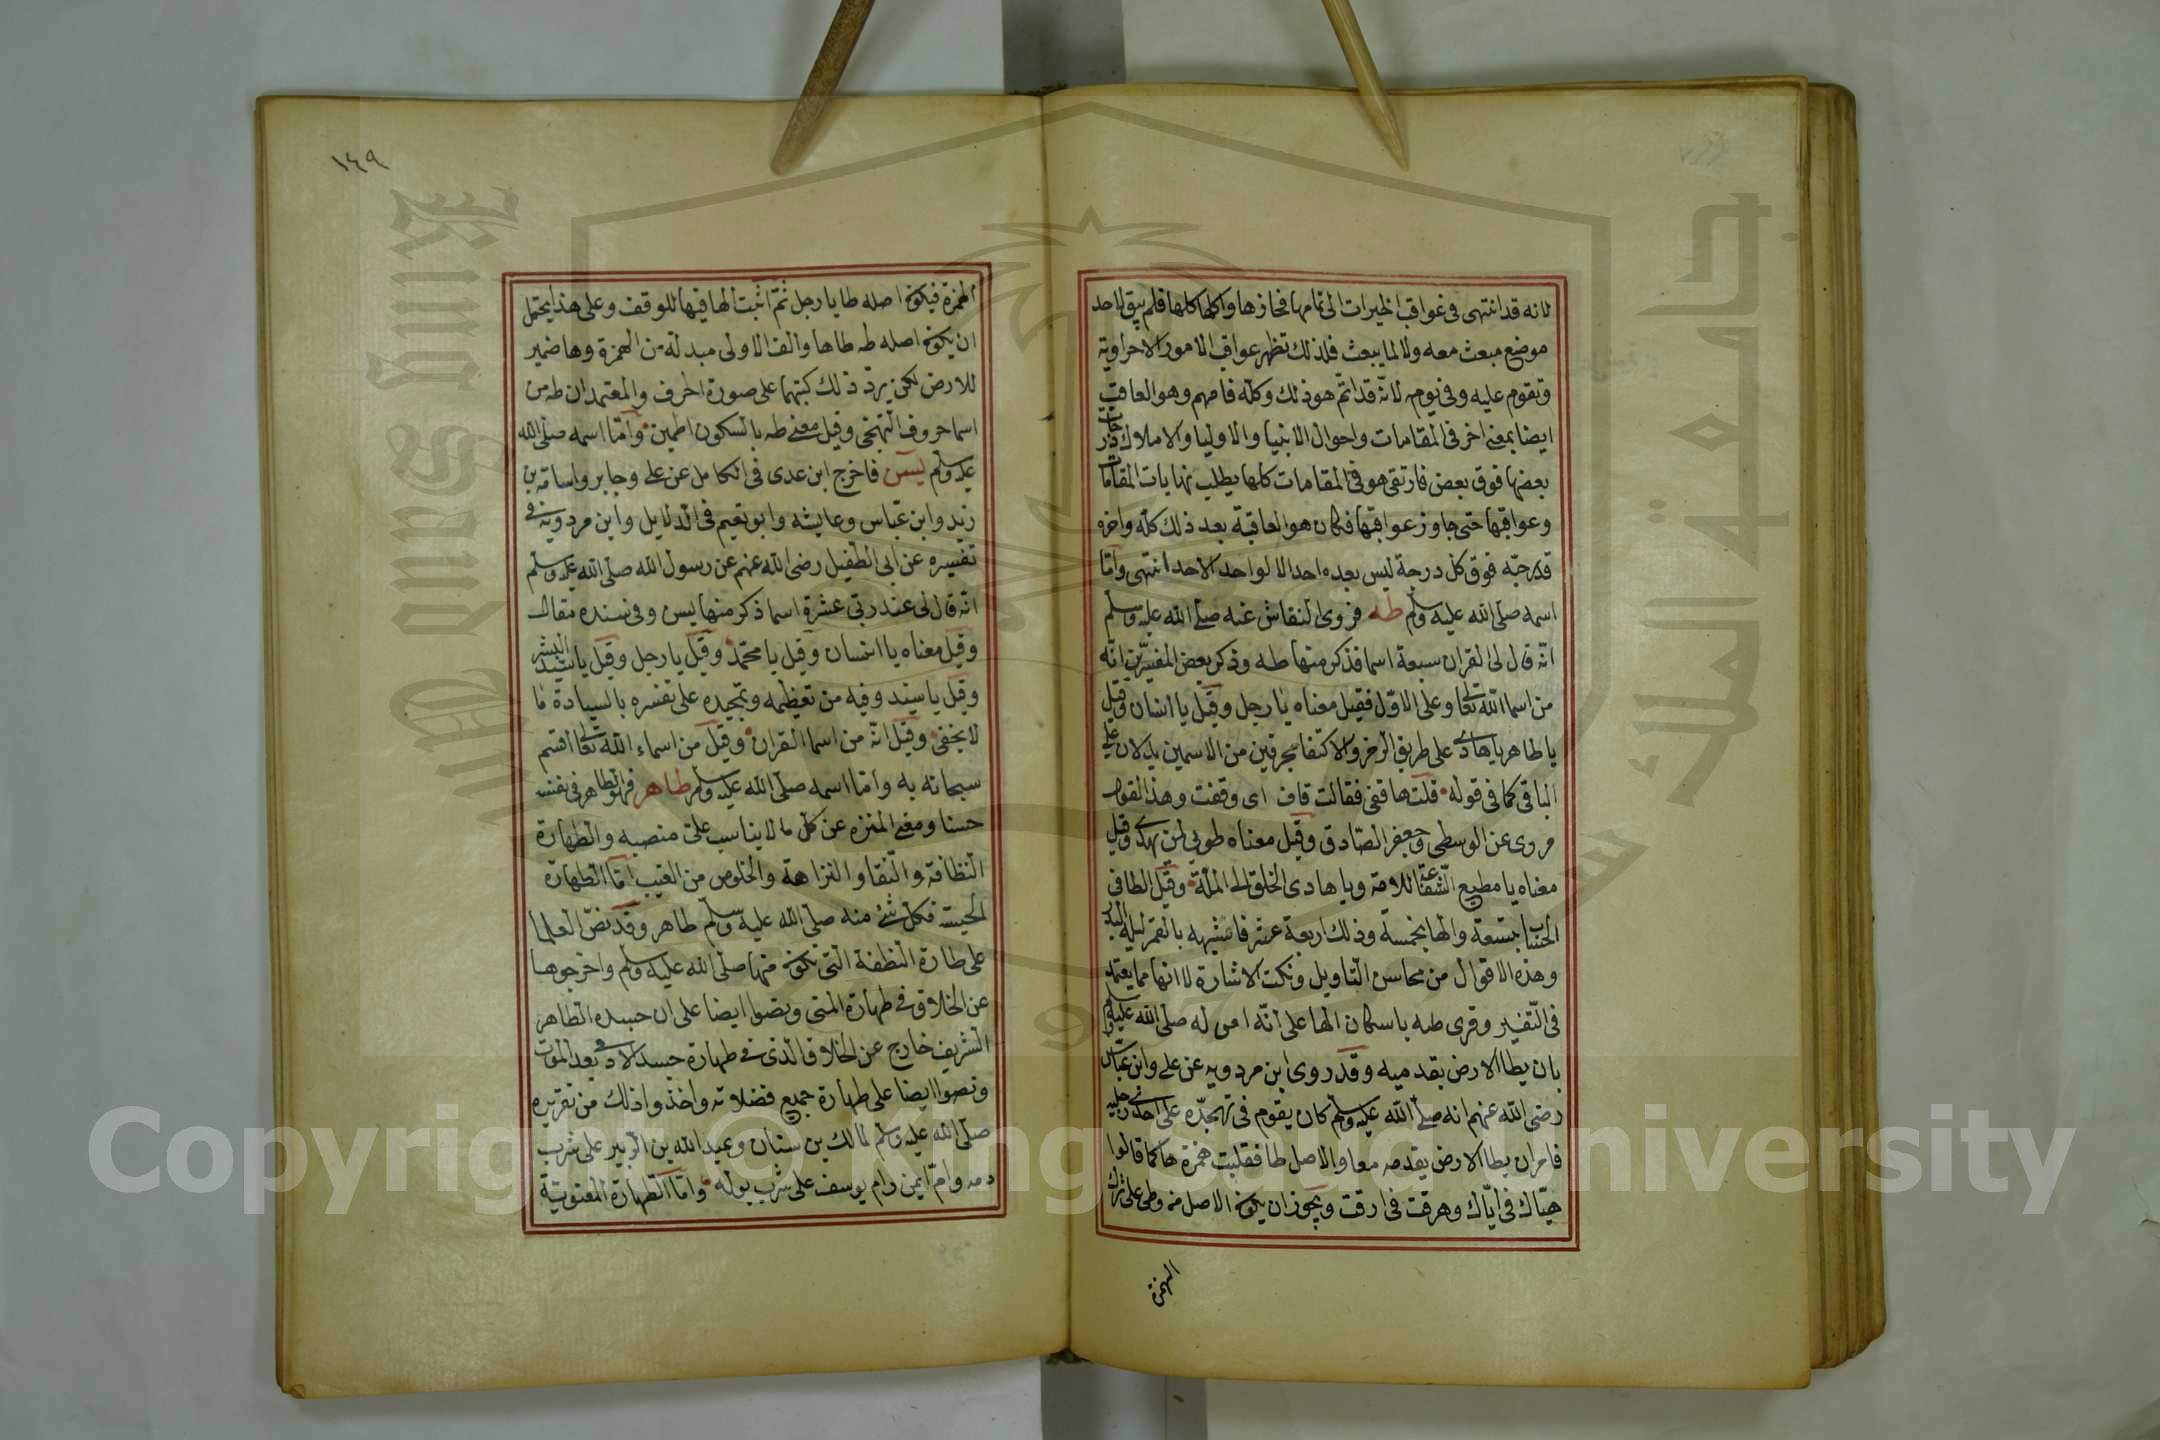 لانه قد انتهى فى عواقب الخيرات الى تمامها فحازها واكلها كلها فلم يبق لاحد
موضع مبعث معه ولا لما يبعث فلذلك تظهر عواقب الامور الاخراوية
وتقوم عليه وفى يوم لانه قد اتم هو ذلك وكله فافهم وهو العاقب
ايضا بمعنى اخر فى المقامات واحوال الانبيا والاوليا والاملاك درجات
بعضها فوق بعض فارتقى هو فى المقامات كلها يطلب نهايات المقامات
وعواقبها حتى جاوز عواقبها فكان هو العاقبة بعد ذلك كله واخره
فدرجته فوق كل درجة ليس بعده احد الا الواحد الاحد انتهى واما
اسمه صلى الله عليه وسلم طه فروى النقاش عنه صلى الله عليه وسلم
انه قال لى القران سبعة اسما فذكر منها طه وذكر بعض المفسرين انه
من اسما الله تعالى وعلى الاول فقيل معناه يا رجل وقيل يا انسان وقيل
يا طاهر يا هادى على طريق الرمز والاكتفا بحرفين من الاسمين يدلان على
الباقى كما فى قوله قلت ها قفى فقالت قاف اى وقفت وهذا القول
مروى عن الوسطى وجعفر الصادق وقيل معناه طوبى لمن هدى وقيل
معناه يا مطيع الشفاعة للامة ويا هادى الخلق الى الملة وقيل الطا فى
الحساب بتسعة والها بخمسة وذلك اربعة عشر فاشبهه بالقمر ليلة البدر
وهذه الاقوال من محاسن التاويل ونكت الاشارة لا انها مما يعتمد
فى التفسير وقرى طه باسكان الها على انه امر له صلى الله عليه وسلم
بان يطا الارض بقدميه وقد روى ابن مردويه عن على وابن عباس
رضى الله عنهم انه صلى الله عليه وسلم كان يقوم فى تهجده على احدى رجليه
فامران يطا الارض بقدمه معا والاصل طا فقلبت همزة ها كما قالوا
هياك فى اياك وهرقت فى ارقت ويجوز ان يكون الاصل من وطى على ترك
الهمزة
١٤٩
الهمزة فيكون اصله طا يا رجل ثم اثبت لها فيها للوقف وعلى هذا يحتمل
ان يكون اصله طه طاها والف الاولى مبدلة من الهمزة وها ضمير
للارض لكن يرد ذلك كبتهما على صورة احرف والمعتمد ان طه من
اسما حروف التهجى وقيل معنى طه بالسكون اطمين واما اسمه صلى الله
عليه وسلم ليس فاخرج ابن عدى فى الكامل عن على وجابر واسامة بن
زيد وابن عباس وعايشه وابو نعيم فى الدلايل وابن مردويه فى
تفسيره عن ابى الطفيل رضى الله عنهم عن رسول الله صلى الله عليه وسلم
انه قال لى عند ربى عشرة اسما ذكر منها يس وفى سنده مقال
وقيل معناه يا انسان وقيل يا محمد وقيل يا رجل وقيل يا سيد البشر
وقيل يا سيد وفيه من تعظيمه وتمجيده على تفسره بالسيادة ما
لا يخفى وقيل انه من اسما القران وقيل من اسماء الله تعالى اقسم
سبحانه به واما اسمه صلى الله عليه وسلم طاهر فهو الطاهر فى نفسه
حسنا ومعنى المنزه عن كل ما لا يناسب على منصبه والطهارة
النظافة والنقا والنزاهة والخلوص من العيب اما الطهارة
الحيسة فكل شئ منه صلى الله عليه وسلم طاهر وقد نص العلما
على طارة النظفة التى تكون منها صلى الله عليه وسلم واخرجوها
عن الخلاق فى طهارة المنى ونصوا ايضا على ان جسده الطاهر
الشريف خارج عن الخلاف الذى فى طهارة جسد الادمى بعد الموت
ونصوا ايضا على طهارة جميع فضلاته واخذوا ذلك من تقريره
صلى الله عليه وسلم لمالك بن سنان وعبد الله بن الزبير على شرب
دمه وام ايمن وام يوسف على شرب بوله واما الطهارة المعنوية